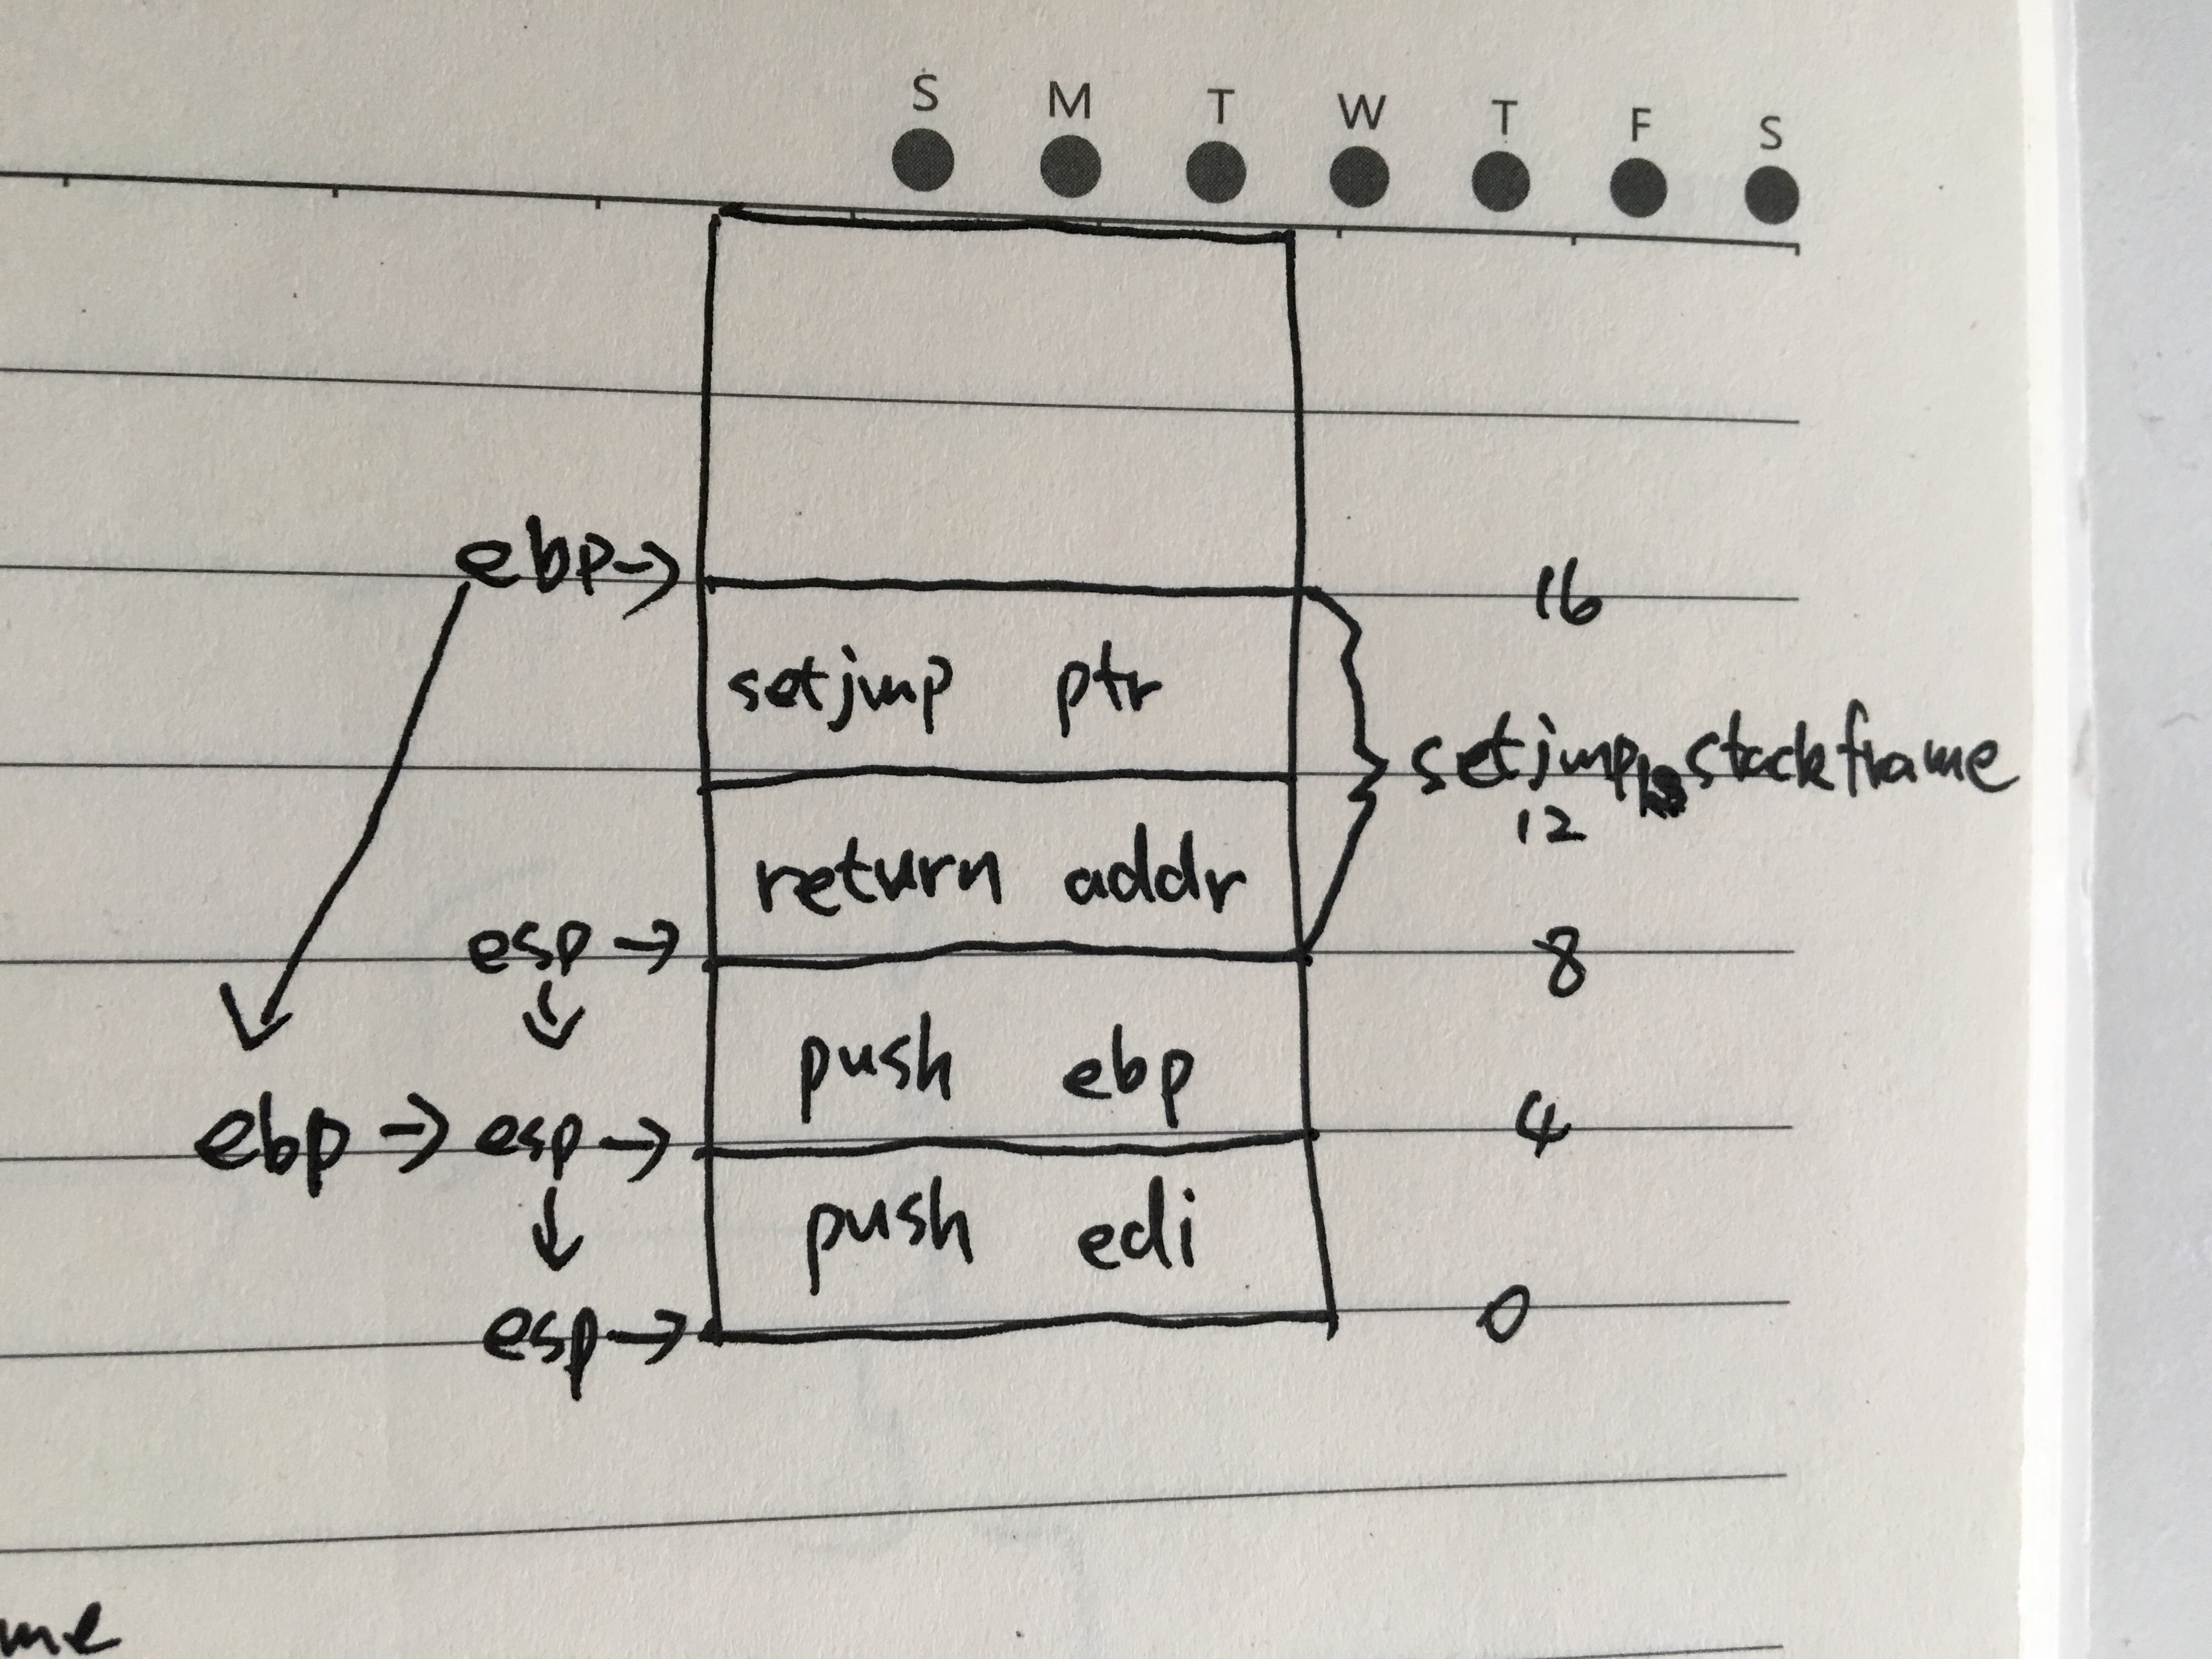 S M T W T F S
ebp→ 16
setjmp ptr
setjmp's stackframe
12
return addr
esp → 8
push ebp
ebp → esp → 4
push edi
esp→ 0
me